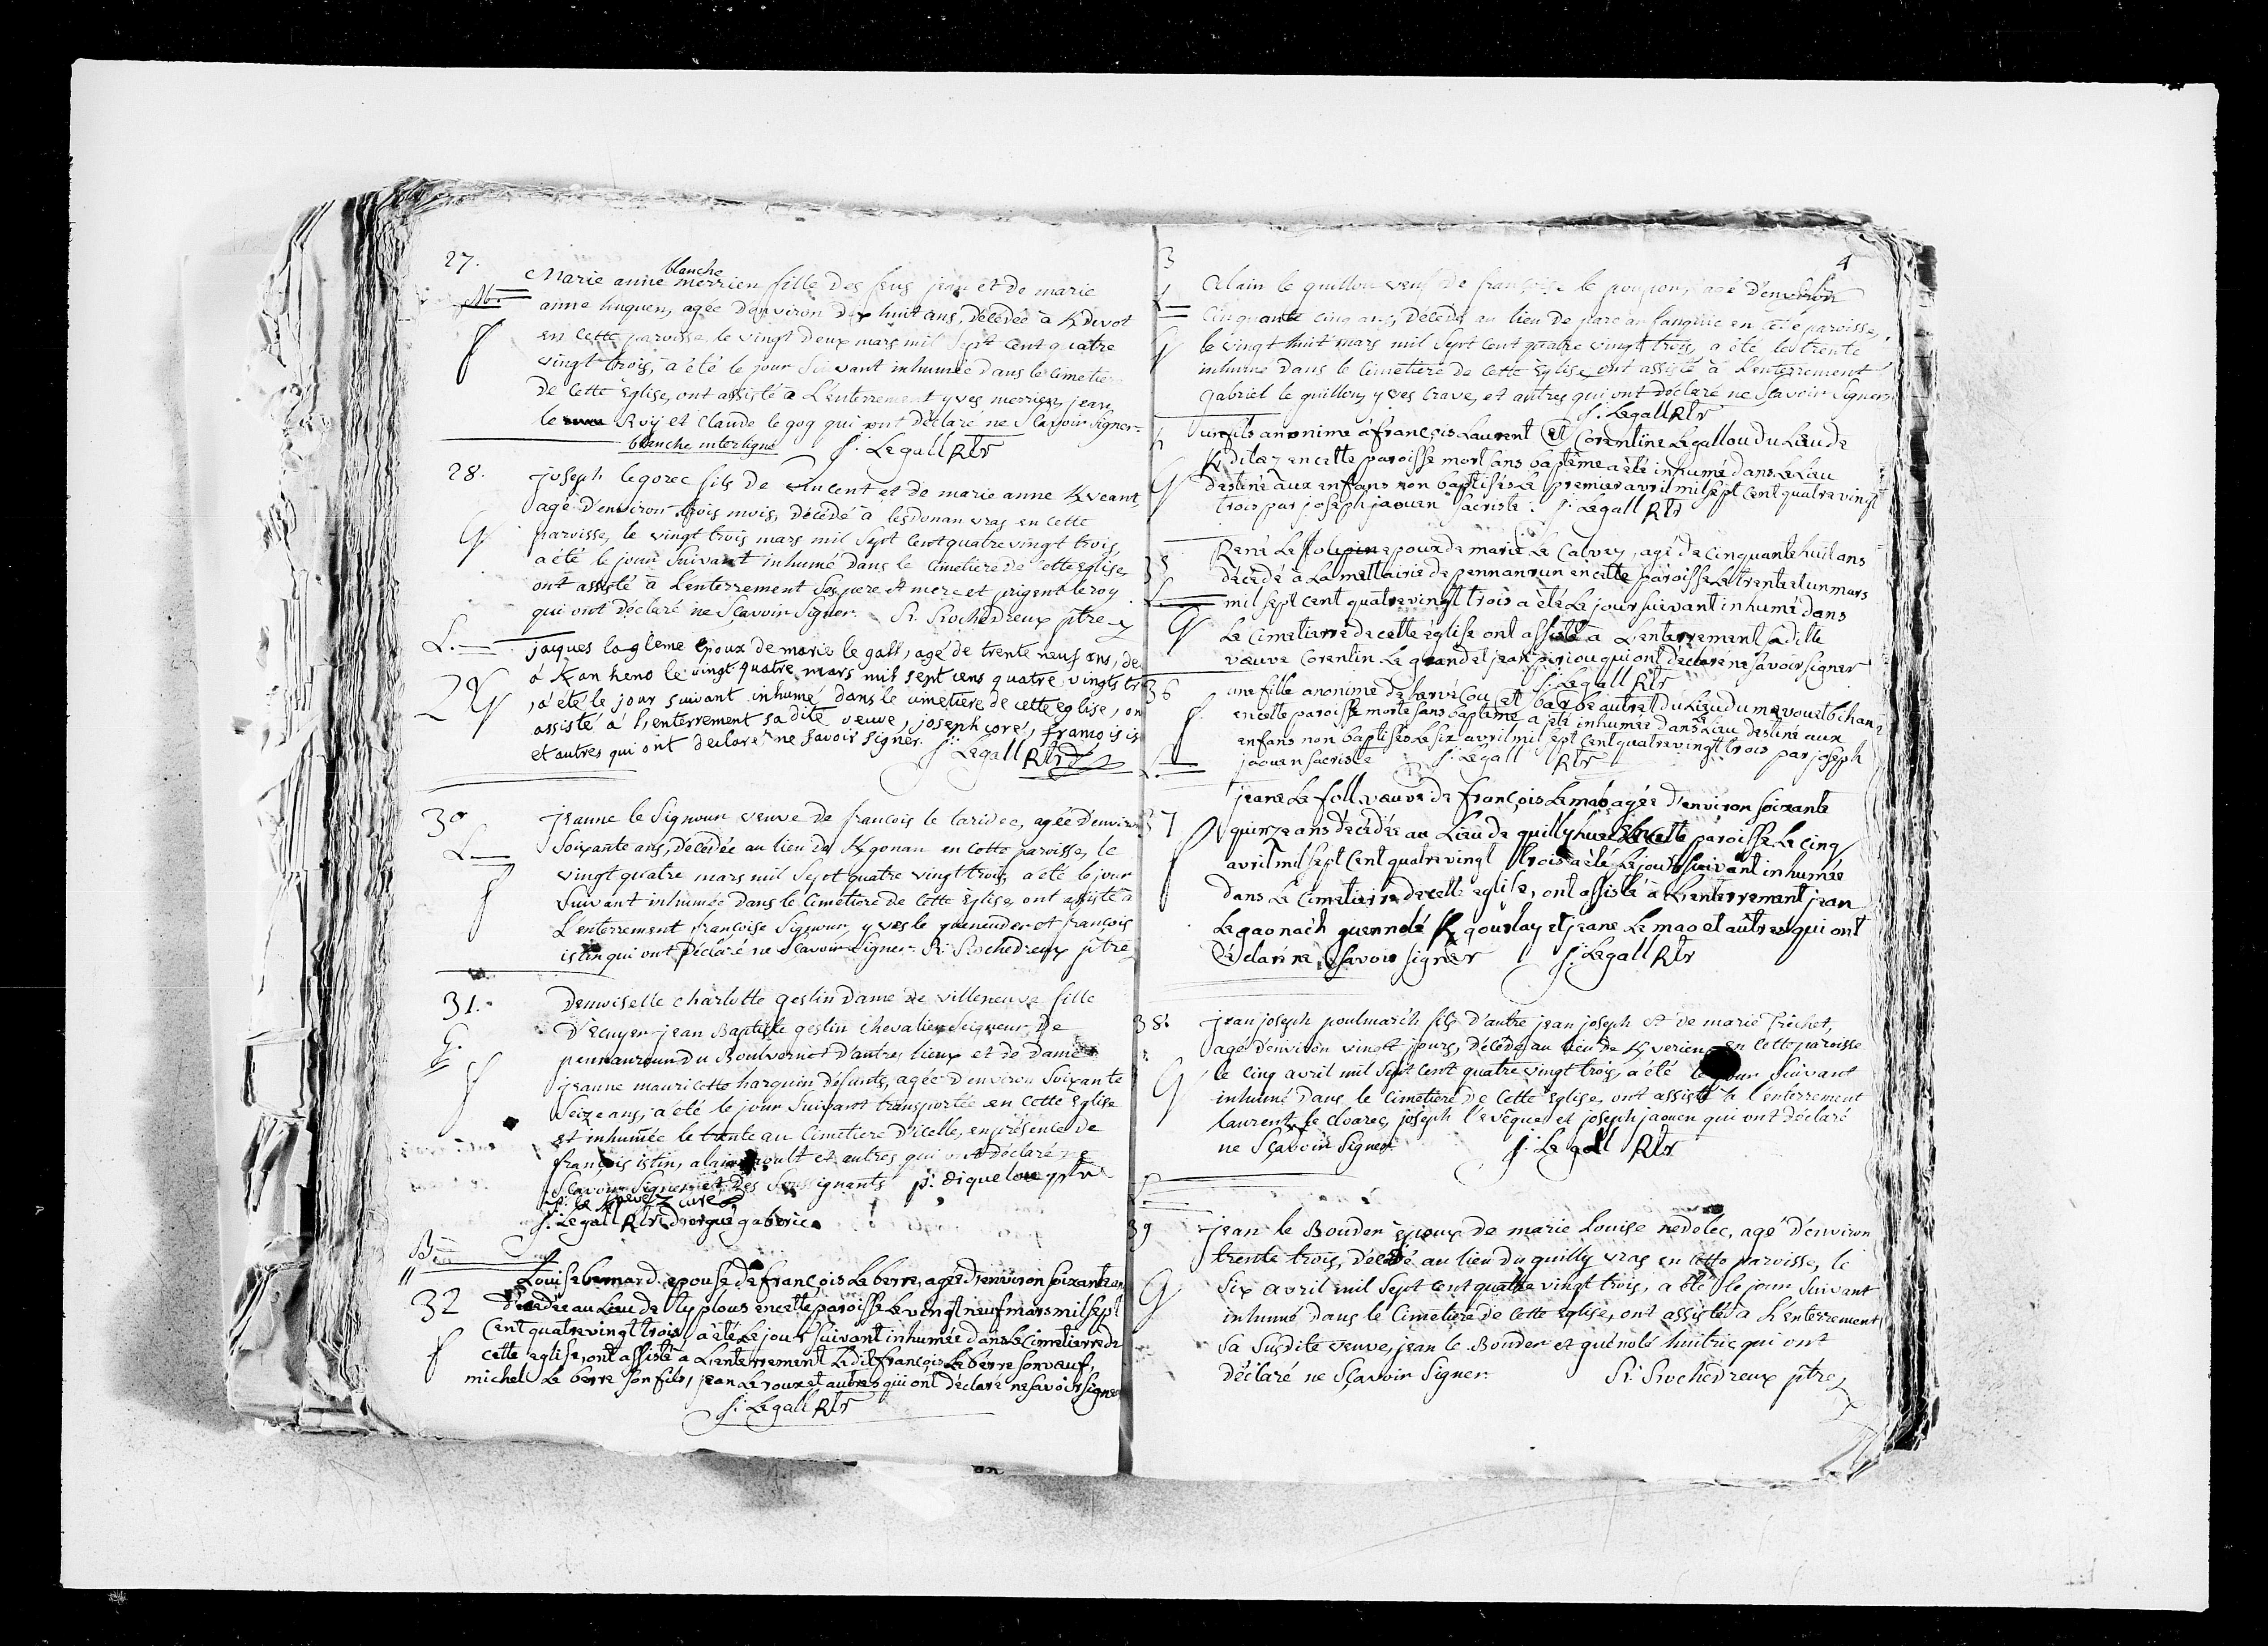 27.
blanche
Marie anne merrien fille des feus jean et de marie
anne huguen, agée d'environ dix huit ans, décédée à K divot
en cette paroisse le vingt deux mars mil sept cent quatre
vingt trois, a été le jour suivant inhumée dans le cimetiere
de cette Eglise, ont assisté à L'enterrement yves merrien, jean
le Roy et Claude le gog qui ont déclaré ne sçavoir signer.
blanche interligne J: Legall Rtr
28.
joseph legorec fils de vincent et de marie anne Kveant,
agé d'environ trois mois, décédé à lesdonan vras en cette
paroisse, le vingt trois mars mil sept cent quatre vingt trois,
a été le jour suivant inhumé dans le cimetiere de cette Eglise,
ont assisté à L'enterrement ses pere et mere et prigent le roy
qui ont déclaré ne sçavoir signer. R: Rochedreux ptre
L.
jaques époux de marie le gall, agé de trente neuf ans, de
à le vingt quatre mars mil sept cens quatre vingts tr
29
a été le jour suivant inhumé dans le cimetiere de cette eglise, on
assisté à l'enterrement sa dite veuve, joseph coré, françois is
et autres qui ont declaré ne savoir signer. J: Legall Rtr
30
jeanne le Signour veuve de francois le caridec, agée d'environ
L
soixante ans, décédée au lieu de Kgonan en cette paroisse, le
vingt quatre mars mil sept quatre vingt trois a été le jour
suivant inhumée dans le cimetiere de cette Eglise, ont assisté à
L'enterrement françoise Signour, yves le et françois
istin qui ont déclaré ne sçavoir signer. R: Rochedreux ptre
31.
Demoiselle charlotte geslin dame de villeneuve fille
D'Ecuyer jean Baptiste geslin chevalier Seigneur de
G.
pennanroun du Boulvern et d'autres lieux et de Dame
jeanne mauricette harquin défunts, agée d'environ soixante
seize ans, a été le jour suivant transportée en cette Eglise
et inhumée le trente au cimetiere d'icelle, en présence de
françois istin, alain et autres qui ont déclaré ne
sçavoir signer et des soussignants p:
curé
J: Legall Rtr d'ergué gaberic
B
32
Louise bernard epouse de François Le berre, agée d'environ soixante ans
décédée au Lieu de plous en cette paroisse Le vingt neuf mars mil sept
Cent quatre vingt trois a été Le jour suivant inhumée dans Le Cimetierre de
cette eglise, ont assisté a Lenterrement Ledit François Le berre son veuf,
michel Le berre son fils, jean Le roux et autres qui ont déclaré ne savoir signer
J: Legall Rtr
4
3
L
Alain le guillou veuf de françoise le poupon, agé d'environ
Cinquante cinq ans, décédé au lieu de parc an en cette paroisse,
le vingt huit mars mil sept cent quatre vingt trois, a été le trente
inhumé dans le cimetiere de cette Eglise, ont assisté à L'enterrement
gabriel le guillou, yves Crave, et autres qui ont déclaré ne sçavoir signer
J: Legall Rtr
un fils anonime à françois Laurent et Corentine Legallou du Lieu de
K dilez en cette paroisse mort sans baptême a été inhumé dans Le Lieu
destiné aux enfans non baptisés Le premier avril mil sept Cent quatre vingt
trois par joseph jaouen sacriste. J: Legall Rtr
35
René Le epoux de marie Le Calvez, agé de Cinquante huit ans
décédé à La mettairie de pennanrun en cette paroisse Le trente et un mars
mil sept cent quatre vingt trois a été Le jour suivant inhumé dans
Le Cimetierre de cette église ont assisté a L'enterrement Ladite
vœuve Corentin Le grand et jean piriou qui ont déclaré ne savoir signer
J: Legall Rtr
36
une fille anonime de hervé Cou et barbe autret du Lieu du
en cette paroisse morte sans baptême a été inhumée dans Le Lieu destiné aux
enfans non baptisés Le six avril mil sept Cent quatre vingt trois par joseph
jaouen sacriste J: Legall Rtr
L
37
jeane Le foll vœuve de françois Le mao agée d'environ soixante
quinze ans décédée au Lieu de quilly huec en cette paroisse Le cinq
avril mil sept Cent quatre vingt trois a été Le jour suivant inhumée
dans Le Cimetierre de cette eglise, ont assisté à Lenterrement jean
Le gaonach guennolé K gourlay et jeane Le mao et autres qui ont
déclaré ne savoir signer J: Legall Rtr
38.
jean joseph poulmarc'h fils d'autre jean joseph et de marie Trichet,
agé d'environ vingt jours, décédé au lieu de K verien en cette paroisse
le cinq avril mil sept cent quatre vingt trois, a été le jour suivant
inhumé dans le cimetiere de cette Eglise, ont assisté à l'enterrement
laurent le cloarec, joseph l'evêque et joseph jaouen qui ont déclaré
ne sçavoir signer. J: Legall Rtr
39
jean le Bouder époux de marie Louise nedelec, agé d'environ
trente trois, décédé au lieu du quilly vras en cette paroisse, le
six avril mil sept cent quatre vingt trois, a été le jour suivant
inhumé dans le Cimetiere de cette Eglise, ont assisté à L'enterrement
sa susdite veuve, jean le Bouder et guénolé huitric qui ont
déclaré ne sçavoir signer. R: Rochedreux ptre